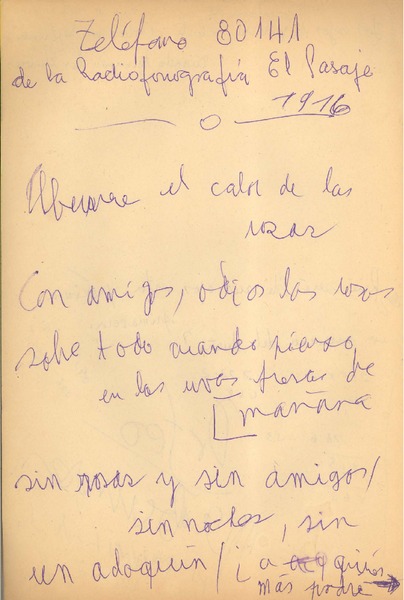 Teléfono 80141
de la Radiofonografía El Pasaje
1916
el calor de las
rosas
Con amigos, odio las rosas
sobre todo cuando pienso
en las uvas frescas de
[mañana
sin rosas y sin amigos/
sin noches, sin
un adoquín/¿a quién
más podré